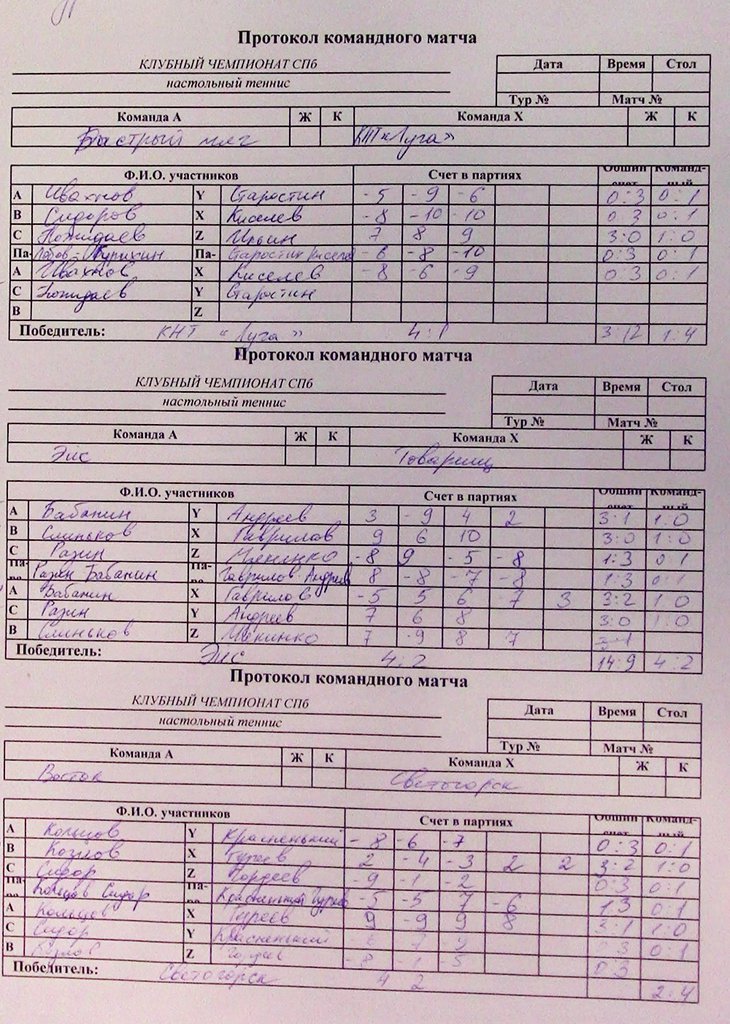 Протокол командного матча
КЛУБНЫЙ ЧЕМПИОНАТ СПб
настольный теннис
Дата Время Стол
Тур № Матч №
Команда А Ж К Команда Х Ж К
Быстрый мяч КНТ «Луга»
Ф.И.О. участников Счет в партиях Общий счет Команд-ный
A Ивахнов Y Старостин -5 -9 -6 0:3 0:1
B Сидоров X Киселев -8 -10 -10 0:3 0:1
C Пожидаев Z Ильин 7 8 9 3:0 1:0
Па- Па- Старостин Киселев -6 -8 -10 0:3 0:1
A Ивахнов X Киселев -8 -6 -9 0:3 0:1
C Пожидаев Y Старостин
B Z
Победитель: КНТ «Луга» 4:1 3:12 1:4
Протокол командного матча
КЛУБНЫЙ ЧЕМПИОНАТ СПб
настольный теннис
Дата Время Стол
Тур № Матч №
Команда А Ж К Команда Х Ж К
Эис Товарищ
Ф.И.О. участников Счет в партиях Общий счет Команд-ный
A Бабанин Y Андреев 3 -9 4 2 3:1 1:0
B Слиньков X Гаврилов 9 6 10 3:0 1:0
C Разин Z -8 9 -5 -8 1:3 0:1
Па-ра Разин Бабанин Па-ра Гаврилов Андреев 8 -8 -7 -8 1:3 0:1
A Бабанин X Гаврилов -5 5 6 7 3 3:2 1:0
C Разин Y Андреев 7 6 8 3:0 1:0
B Слиньков Z 7 -9 8 7 3:1
Победитель: Эис 4:2 14:9 4:2
Протокол командного матча
КЛУБНЫЙ ЧЕМПИОНАТ СПб
настольный теннис
Дата Время Стол
Тур № Матч №
Команда А Ж К Команда Х Ж К
Восток Светогорск
Ф.И.О. участников Счет в партиях Общий счет Команд-ный
A Кольцов Y Красненький -8 -6 -7 0:3 0:1
B Козлов X 2 -4 -3 2 2 3:2 1:0
C Сидор Z Гордеев -9 -1 -2 0:3 0:1
Па-ра Кольцов Сидор Па-ра Красненький -5 -5 7 -6 1:3 0:1
A Кольцов X 9 -9 9 8 3:1 1:0
C Сидор Y Красненький 0:3 0:1
B Козлов Z -8 -1 -5 0:3
Победитель: Светогорск 4 2 2:4